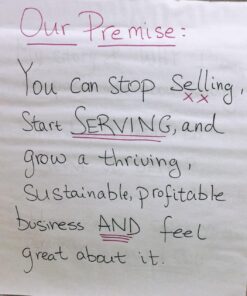 Our Premise:
You Can Stop Selling,
Start SERVING, and
grow a thriving,
sustainable, profitable
business AND feel
great about it.